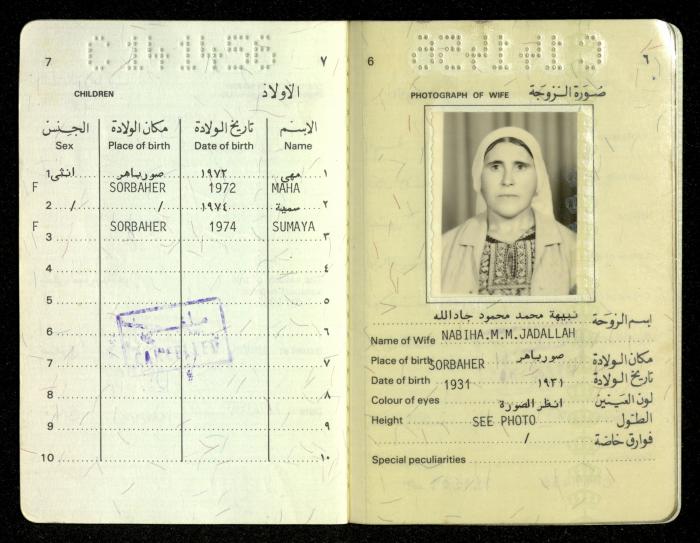 C 144456
7 ٧
CHILDREN الاولاد
الجنس مكان الولادة تاريخ الولادة الاسم
Sex Place of birth Date of birth Name
1 انثى صورباهر ١٩٧٢ مهى ١
F SORBAHER 1972 MAHA
2 / / ١٩٧٤ سمية ٢
F SORBAHER 1974 SUMAYA
3 ٣
4 ٤
5 ٥
6 ٦
7 ٧
8 ٨
9 ٩
10 ١٠
6 ٦
PHOTOGRAPH OF WIFE صورة الزوجة
نبيهة محمد محمود جادالله اسم الزوجة
Name of Wife NABIHA.M.M.JADALLAH
صورباهر مكان الولادة
Place of birth SORBAHER
١٩٣١ تاريخ الولادة
Date of birth 1931
انظر الصورة لون العينين
Colour of eyes
الطول
Height SEE PHOTO
/ فوارق خاصة
Special peculiarities